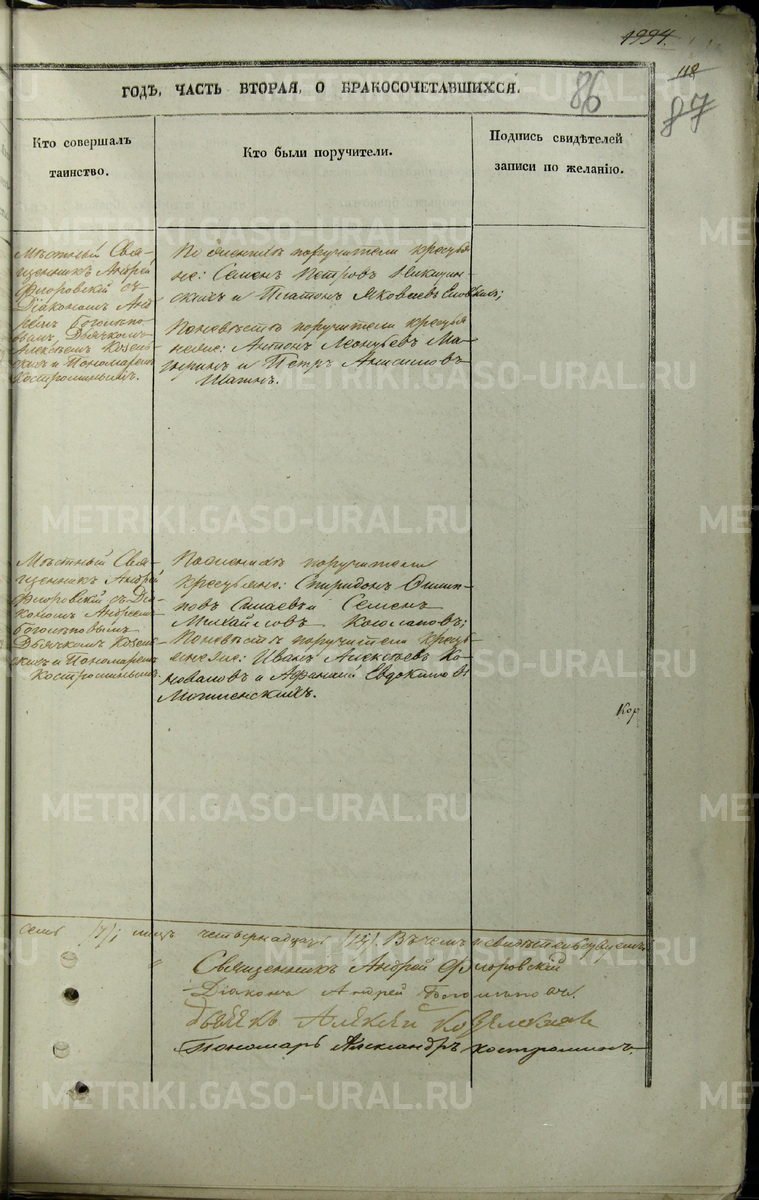 1994.
118
86
87
ГОДЪ, ЧАСТЬ ВТОРАЯ, О БРАКОСОЧЕТАВШИХСЯ.
Кто совершалъ
таинство.
Кто были поручители.
Подпись свидѣтелей
записи по желанію.
Мѣстный Свя-
щенникъ Андрей
Флоровскій съ
Діакономъ Анд
реемъ Боголѣпо
вымъ, Дьячкомъ
Алексѣемъ Козель
скимъ и Пономаремъ
Костроминымъ.
По женихѣ поручители крестья
не: Семенъ Петровъ
и Платонъ Яковлевъ
По невѣстѣ поручители крестья
не: Антонъ Леонтьевъ
и Петръ Анисимовъ
Шатинъ.
Мѣстный Свя-
щенникъ Андрей
Флоровскій съ Діа
кономъ Андреемъ
Боголѣповымъ
Дьячкомъ Козель
скимъ и Пономаремъ
Костроминымъ.
По женихѣ поручители
крестьяне: Спиридонъ Филип
повъ и Семенъ
Михайловъ
По невѣстѣ поручители кресть
яне: Иванъ Алексѣевъ Ко
новаловъ и Афанасій Евдокимовъ
Могиленскихъ.
Кор
семь /7/; лицъ четырнадцать /14/. Въ чемъ и свидѣтельствуемъ
Священникъ Андрей Флоровскій
Діаконъ Андрей Боголѣповъ.
Дьячекъ Алексѣй Козельскій
Пономарь Александръ Костроминъ.
METRIKI.GASO-URAL.RU